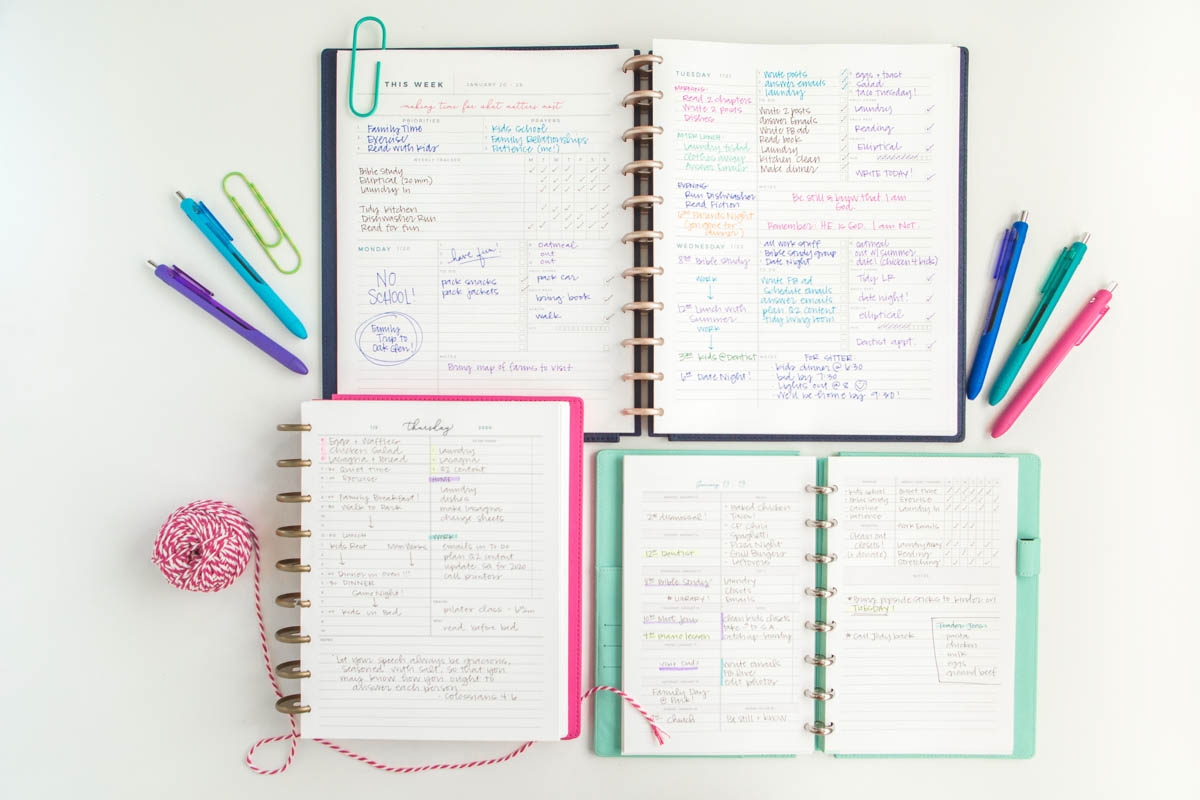 THIS WEEK JANUARY 20 - 26
making time for what matters most
PRIORITIES PRAYERS
Family Time Kids School
Exercise Family Relationships
Read with kids Patience (me!)
WEEKLY TRACKER M T W T F S S
Bible Study
Elliptical (20 min)
Laundry In
Tidy Kitchen
Dishwasher Run
Read for fun
MONDAY 1/20
have fun!
oatmeal
out
out
NO
SCHOOL!
TO DO
pack snacks
pack jackets
pack car
bring book
walk
Family
Trip to
Oak Glen!
NOTES
Bring map of farms to visit
TUESDAY 1/21
MORNING:
Read 2 chapters
Write 2 posts
Dishes
AFTER LUNCH:
Laundry folded
Clothes away
Answer Emails
EVENING:
Run Dishwasher
Read Fiction
6:00 Parents Night
write posts
answer emails
laundry
TO DO
Write 2 posts
Answer Emails
Write FB ad
Read book
Laundry
Kitchen clean
Make dinner
eggs + toast
salad
taco Tuesday!
Laundry
Reading
Elliptical
WRITE TODAY!
NOTES
Be still & know that I am
God.
Remember: HE is GOD. I am NOT.
WEDNESDAY 1/22
8:30 Bible Study
WORK
12:00 Lunch with
Summer
WORK
3:00 Kids @ Dentist
6:00 Date Night!
all work stuff
Bible study group
Date Night
TO DO
Write FB ad
Schedule emails
answer emails
plan Q2 content
tidy living room
oatmeal
out w/ Summer
date! (chicken 4 kids)
Tidy LR
date night!
elliptical
Dentist appt.
NOTES
FOR SITTER:
- kids dinner @ 6:30
- bed by 7:30
- Lights out @ 8
- We'll be home by 9:30!
1/23 Thursday 2020
Eggs + Waffles
Chicken Salad
Lasagna + Bread
Quiet time
Exercise
Family Breakfast!
Walk to Park
LUNCH
Kids Rest Mom Works
Dinner in oven!!!
DINNER
Game Night!
Kids in Bed
Laundry
Lasagna
B2 Content
HOME
laundry
dishes
make lasagna
change sheets
WORK
emails in to do
plan Q2 content
update SG for 2020
call printers
pilates class - 6am
read before bed
NOTES
"Let your speech always be gracious,
seasoned with salt, so that you
may know how you ought to
answer each person
- Colossians 4:6
January 13 - 19
2:00 dismissal!
12:00 Dentist
8:30 Bible Study!
* LIBRARY!
4:00 piano lesson
Family Day
@ Park!
church
Baked chicken
Tacos!
CP Chili
Spaghetti
Pizza Night
Grill Burgers
Leftovers
laundry
closets
Emails
clean kids closets
take to S.A.
catch up - laundry
write emails
FB live
edit photos
Be still + know.
Kids school
Bible Study
Caroline
patience
Clean out
closets!
(+ donate)
Quiet time
Exercise
Laundry In
Work Emails
Laundry Away
Reading
Stretching
NOTES
* Bring popsicle sticks to kinder on
TUESDAY!
* Call Jody back
Trader Joes
pasta
chicken
milk
eggs
ground beef